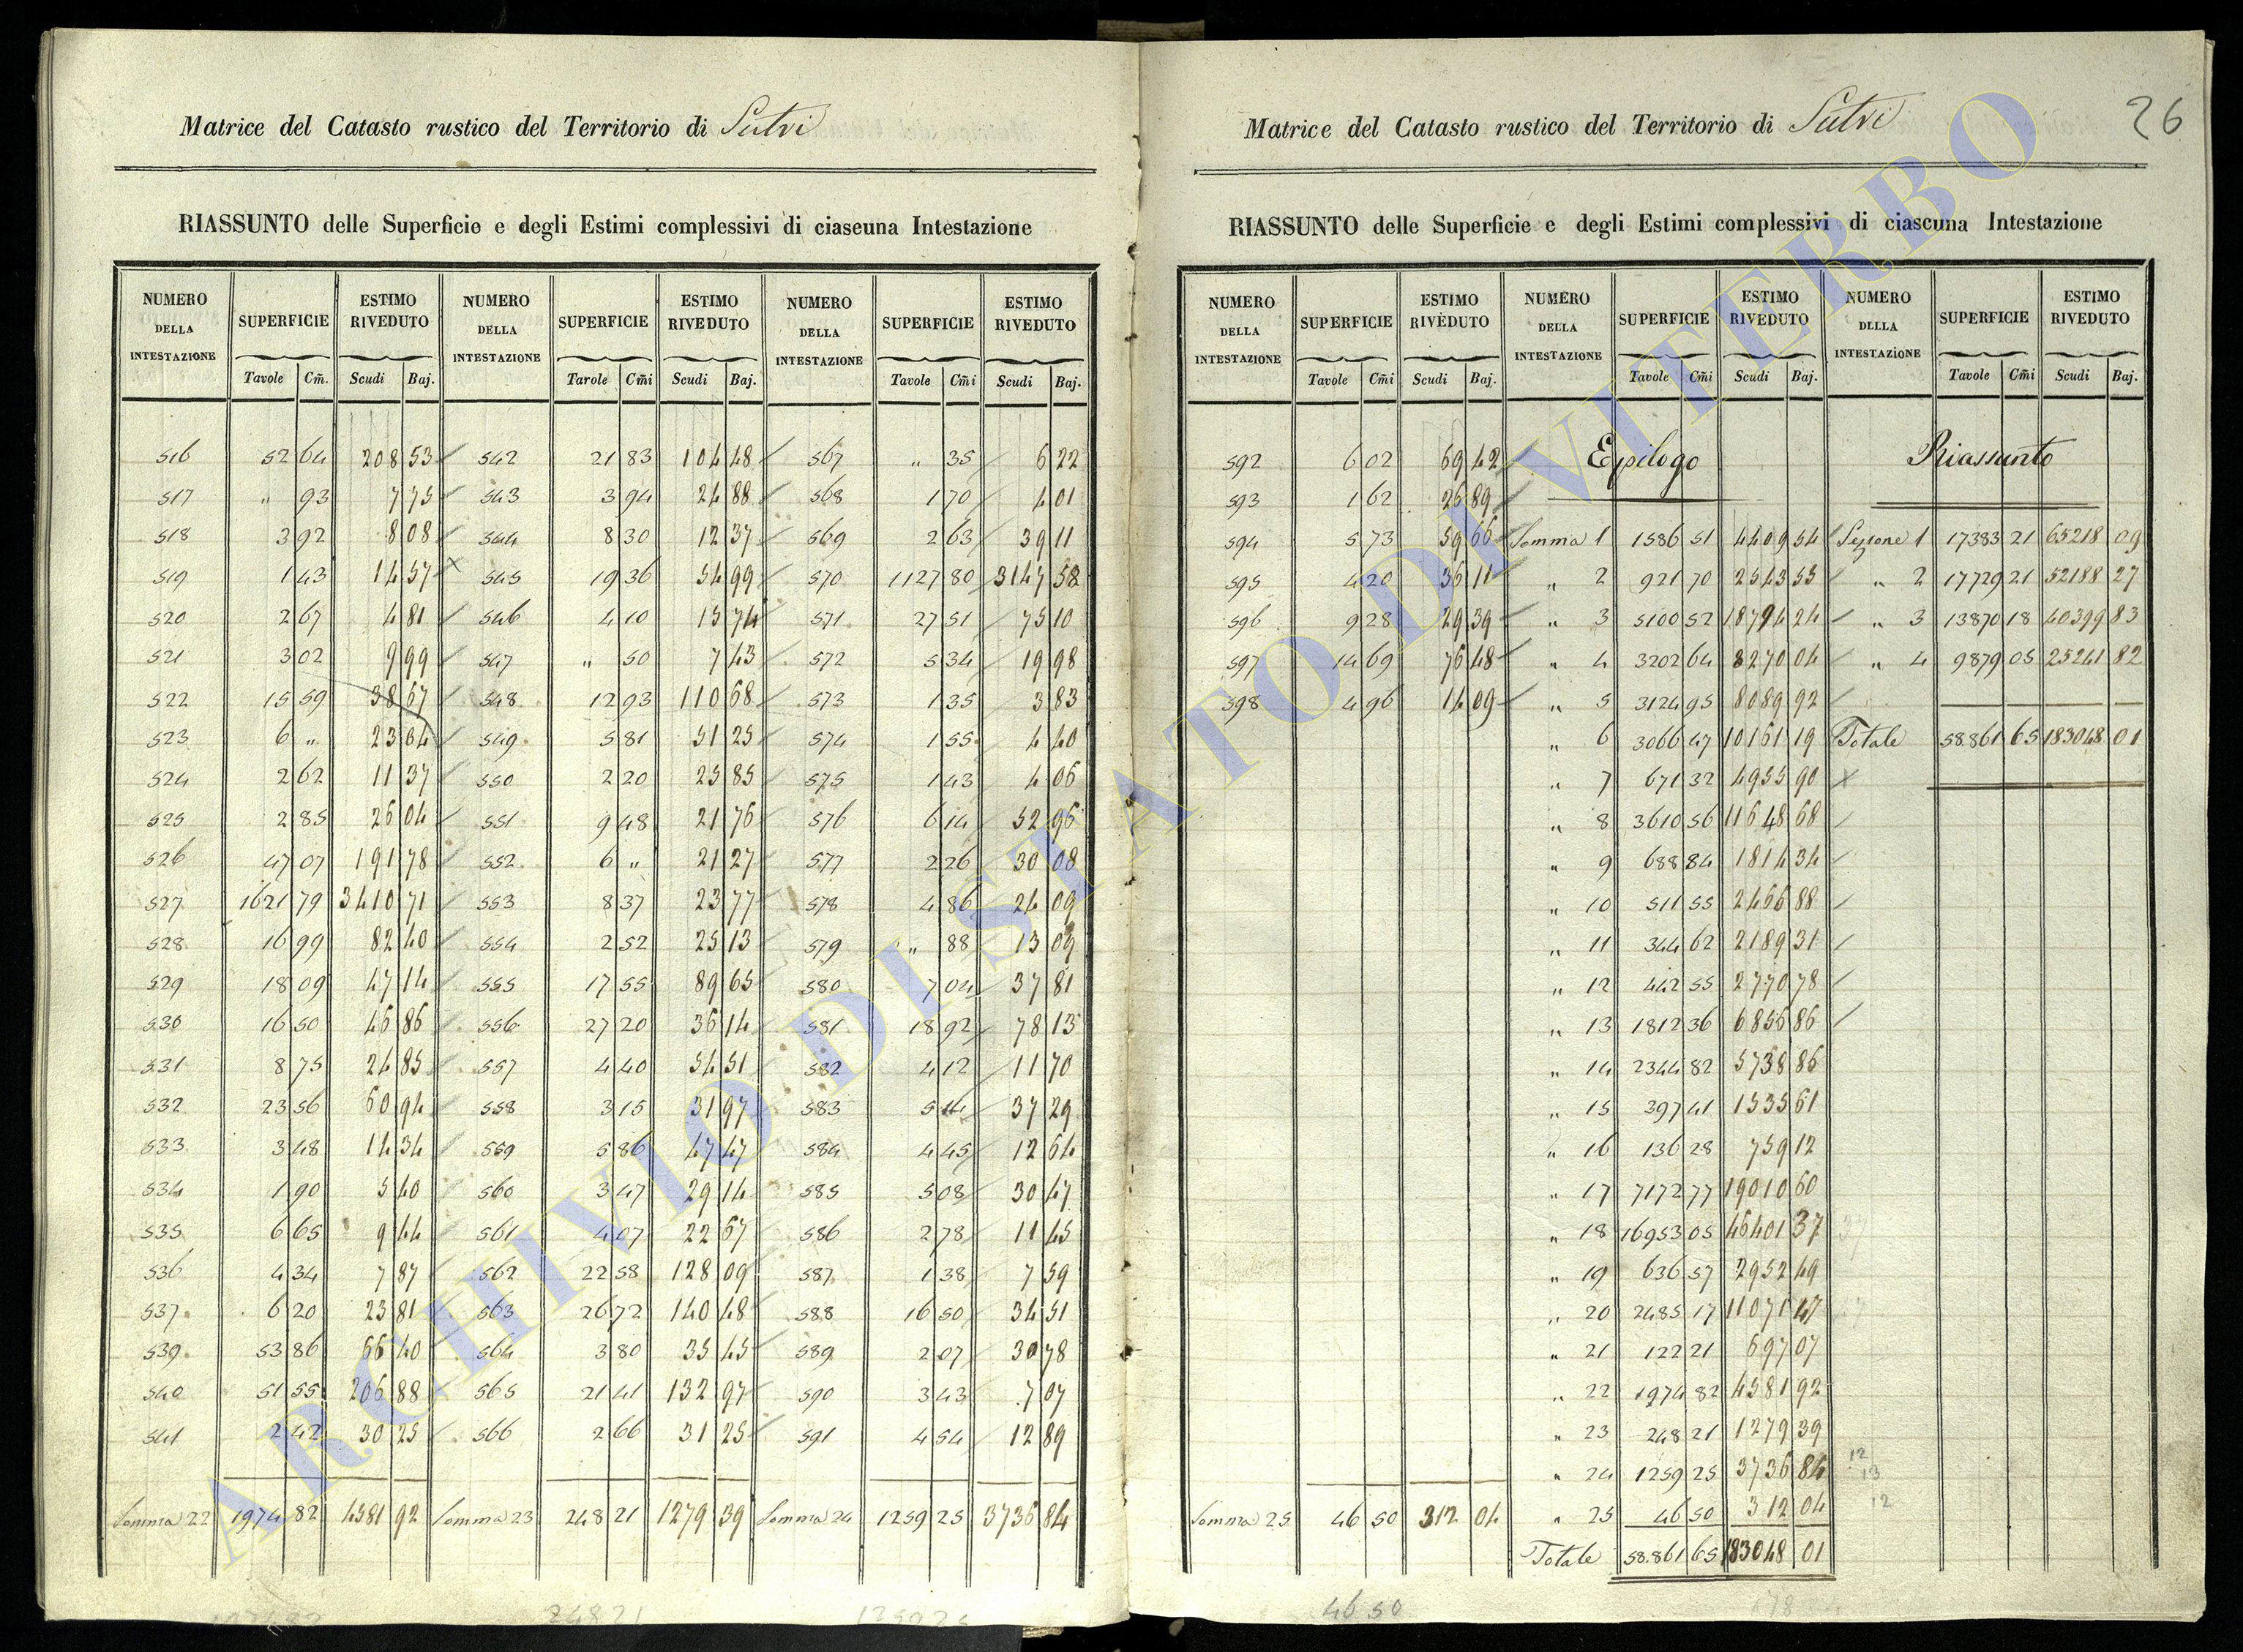 Matrice del Catasto rustico del Territorio di Sutri
RIASSUNTO delle Superficie e degli Estimi complessivi di ciaseuna Intestazione
NUMERO DELLA INTESTAZIONE SUPERFICIE ESTIMO RIVEDUTO NUMERO DELLA INTESTAZIONE SUPERFICIE ESTIMO RIVEDUTO NUMERO DELLA INTESTAZIONE SUPERFICIE ESTIMO RIVEDUTO
Tavole Cm̃. Scudi Baj. Tarole Cm̃i Scudi Baj. Tavole Cm̃i Scudi Baj.
516 52 64 208 53 542 21 83 104 48 567 " 35 6 22
517 " 93 7 75 543 3 94 24 88 568 1 70 4 01
518 3 92 8 08 544 8 30 12 37 569 2 63 39 11
519 1 43 14 57 545 19 36 54 99 570 1127 80 3147 58
520 2 67 4 81 546 4 10 15 74 571 27 51 75 10
521 3 02 9 99 547 " 50 7 43 572 5 34 19 98
522 15 59 38 67 548 12 93 110 68 573 1 35 3 83
523 6 " 23 64 549 5 81 51 25 574 1 55 4 40
524 2 62 11 37 550 2 20 25 85 575 1 43 4 06
525 2 85 26 04 551 9 48 21 76 576 6 14 52 96
526 47 07 191 78 552 6 " 21 27 577 2 26 30 08
527 1621 79 3410 71 553 8 37 23 77 578 4 86 24 09
528 16 99 82 40 554 2 52 25 13 579 " 88 13 09
529 18 09 47 14 555 17 55 89 65 580 7 04 37 81
530 16 50 46 86 556 27 20 36 14 581 18 92 78 13
531 8 75 24 85 557 4 40 54 51 582 4 12 11 70
532 23 56 60 94 558 3 15 31 97 583 5 14 37 29
533 3 48 14 34 559 5 86 47 47 584 4 45 12 64
534 1 90 5 40 560 3 47 29 14 585 5 08 30 47
535 6 65 9 44 561 4 07 22 67 586 2 78 11 45
536 4 34 7 87 562 22 58 128 09 587 1 38 7 59
537 6 20 23 81 563 26 72 140 48 588 16 50 34 51
539 53 86 66 40 564 3 80 35 45 589 2 07 30 78
540 51 55 206 88 565 21 41 132 97 590 3 43 7 07
541 2 42 30 25 566 2 66 31 25 591 4 54 12 89
Somma 22 1974 82 4581 92 Somma 23 248 21 1279 39 Somma 24 1259 25 3736 84
248 21 1259 25
26
Matrice del Catasto rustico del Territorio di Sutri
RIASSUNTO delle Superficie e degli Estimi complessivi di ciascuna Intestazione
NUMERO DELLA INTESTAZIONE SUPERFICIE ESTIMO RIVEDUTO NUMERO DELLA INTESTAZIONE SUPERFICIE ESTIMO RIVEDUTO NUMERO DLLLA INTESTAZIONE SUPERFICIE ESTIMO RIVEDUTO
Tavole Cm̃i Scudi Baj. Tavole Cm̃i Scudi Baj. Tavole Cm̃i Scudi Baj.
592 6 02 69 42 Epilogo Riassunto
593 1 62 26 89
594 5 73 59 66 Somma 1 1586 51 4409 54 Sezione 1 17383 21 65218 09
595 4 20 36 11 " 2 921 70 2543 55 " 2 17729 21 52188 27
596 9 28 29 39 " 3 5100 52 18794 24 " 3 13870 18 40399 83
597 14 69 76 48 " 4 3202 64 8270 04 " 4 9879 05 25241 82
598 4 96 14 09 " 5 3124 95 8089 92
" 6 3066 47 10161 19 Totale 58.861 65 183048 01
" 7 671 32 4955 90
" 8 3610 56 11648 68
" 9 688 84 1814 34
" 10 511 55 2466 88
" 11 344 62 2189 31
" 12 442 55 2770 78
" 13 1812 36 6856 86
" 14 2344 82 5738 86
" 15 397 41 1535 61
" 16 136 28 759 12
" 17 7172 77 19010 60
" 18 16953 05 46401 37
" 19 636 57 2952 49
" 20 2485 17 11071 47
" 21 122 21 697 07
" 22 1974 82 4581 92
" 23 248 21 1279 39
" 24 1259 25 3736 84 12 13
Somma 25 46 50 312 04 " 25 46 50 312 04 12
Totale 58.861 65 183048 01
46 50
ARCHIVIO DI STATO DI VITERBO